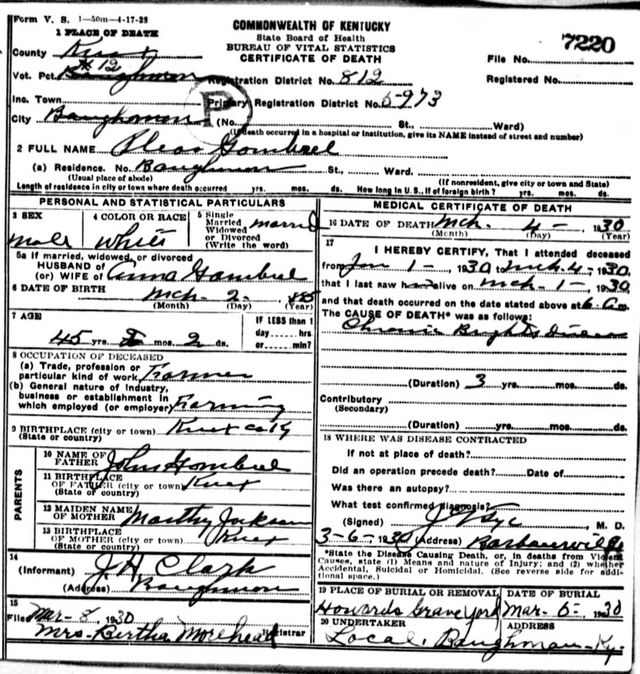 Form V. S. 1-50m-4-17-28
1 PLACE OF DEATH
COMMONWEALTH OF KENTUCKY
State Board of Health
BUREAU OF VITAL STATISTICS
CERTIFICATE OF DEATH
7220
File No.
Registered No.
County Knox
Vot. Pct. #12 Baughman Registration District No. 812
Inc. Town Primary Registration District No. 5973
City Baughman (No. St., Ward)
(If death occurred in a hospital or institution, give its NAME instead of street and number)
2 FULL NAME Gambrel
(a) Residence. No. Baughman St., Ward.
(Usual place of abode) (If nonresident, give city or town and State)
Length of residence in city or town where death occurred yrs. mos. ds. How long in U. S., if of foreign birth? yrs. mos. ds.
PERSONAL AND STATISTICAL PARTICULARS
3 SEX Male
4 COLOR OR RACE White
5 Single Married Widowed or Divorced (Write the word) married
5a If married, widowed, or divorced
HUSBAND OF
(or) WIFE OF Anna Gambrel
6 DATE OF BIRTH Mch. 2. 1885
(Month) (Day) (Year)
7 AGE
45 yrs. mos. 2 ds.
IF LESS than 1 day hrs. or min.?
8 OCCUPATION OF DECEASED
(a) Trade, profession or particular kind of work Farmer
(b) General nature of Industry, business or establishment in which employed (or employer) Farming
9 BIRTHPLACE (city or town) Knox co Ky
(State or country)
PARENTS
10 NAME OF FATHER John Gambrel
11 BIRTHPLACE OF FATHER (city or town) Knox
(State or country)
12 MAIDEN NAME OF MOTHER Marthy Jackson
13 BIRTHPLACE OF MOTHER (city or town) Knox
(State or country)
14
(Informant) J. H. Clark
(Address) Baughman
15
Filed Mar-8, 1930
Mrs. Bertha Morehead Registrar
MEDICAL CERTIFICATE OF DEATH
16 DATE OF DEATH Mch. 4- 1930
(Month) (Day) (Year)
17
I HEREBY CERTIFY, That I attended deceased
from Jan 1- 1930 to Mch. 4- 1930,
that I last saw h alive on Mch- 1- 1930
and that death occurred on the date stated above at 6. am
The CAUSE OF DEATH* was as follows:
Chronic Brights Disease
(Duration) 3 yrs. mos. ds.
Contributory
(Secondary)
(Duration) yrs. mos. ds.
18 WHERE WAS DISEASE CONTRACTED
If not at place of death?
Did an operation precede death? Date of
Was there an autopsy?
What test confirmed diagnosis?
(Signed) M. D.
3-6-1930 (Address) Barbourville
*State the Disease Causing Death, or, in deaths from Violent
Causes, state (1) Means and nature of Injury; and (2) whether
Accidental, Suicidal or Homicidal. (See reverse side for additional space.)
19 PLACE OF BURIAL OR REMOVAL Howards Grave Yard
DATE OF BURIAL Mar-6-1930
20 UNDERTAKER Local.
ADDRESS Baughman-Ky.